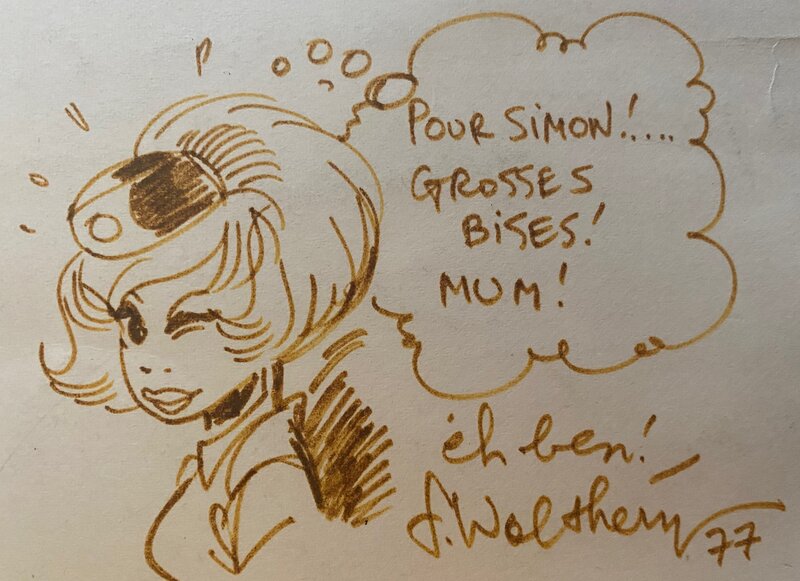 POUR SIMON!....
GROSSES
BISES!
MUM!
eh ben!
F. Walthery
77